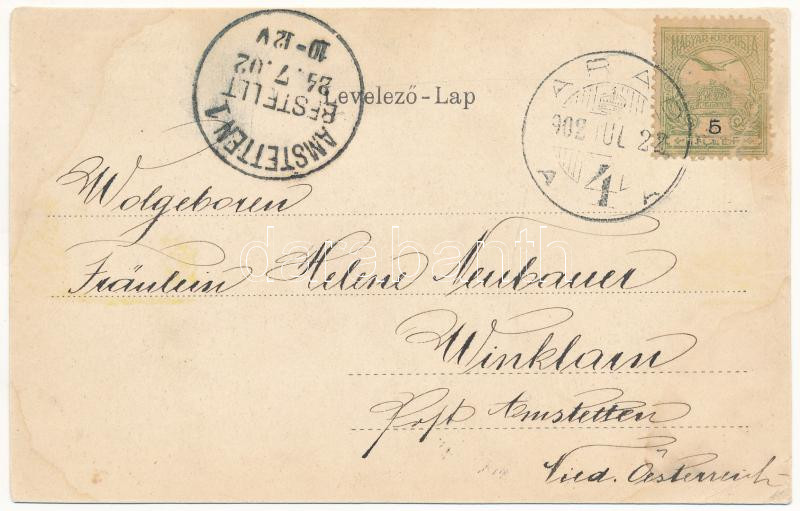 AMSTETTEN 1
BESTELLT
24.7.02
10-12V
Levelező-Lap
ARAD
902 JUL 22
MAGYAR KIR. POSTA
5
Wolgeboren
darabanth
Fräulein Helene Neubauer
Winklarn
Post Amstetten
Nied. Österreich